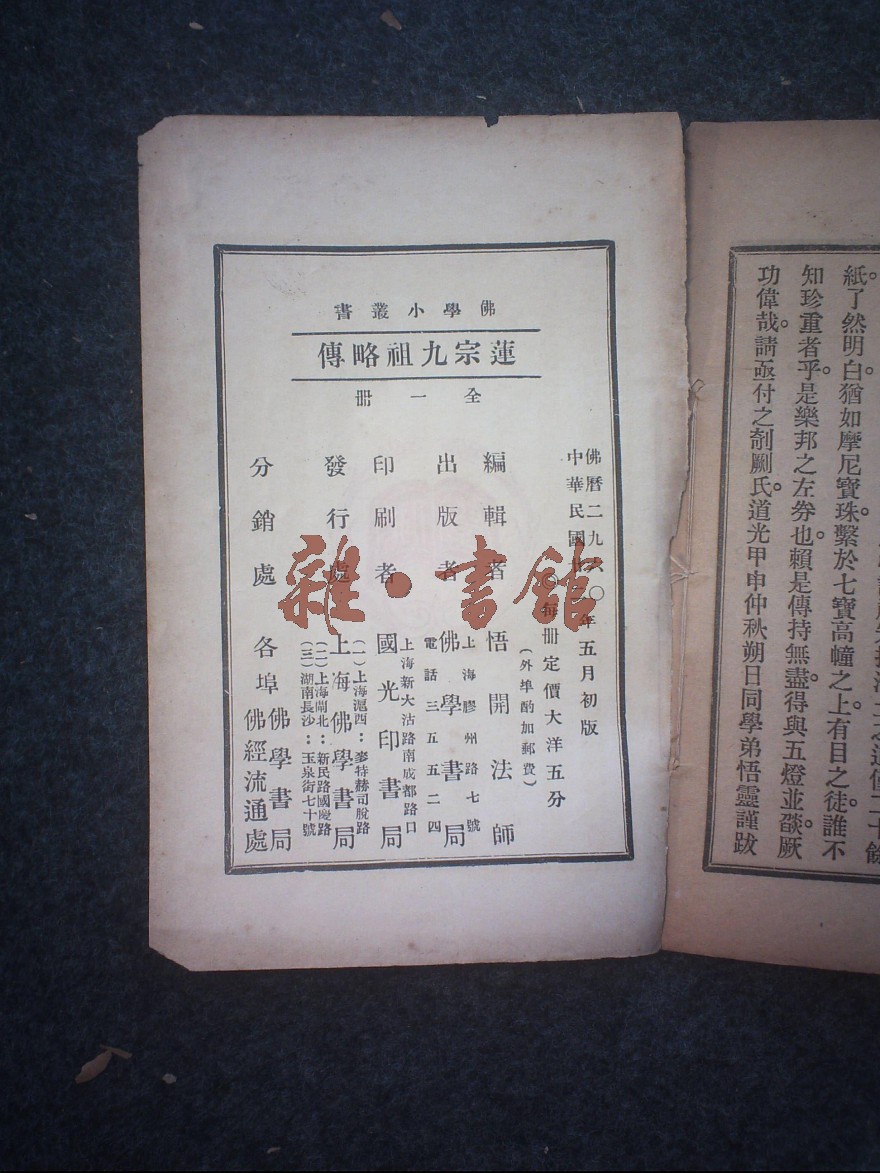 紙了然明白猶如摩尼寶珠。繫於七寶高幢之上。有目之徒。誰不
知珍重者乎。是樂邦之左券也。賴是傳持無盡。得與五燈並燄。厥
功偉哉。請亟付之剞劂氏。道光甲申仲秋朔日同學弟悟靈謹跋
佛學小叢書
蓮宗九祖略傳
全一冊
佛曆二九六〇年五月初版
中華民國
每冊定價大洋五分
(外埠酌加郵費)
編輯者 悟開法師
出版者 佛學書局
上海膠州路七號
電話三五五二四
印刷者 國光印書局
上海新大沽路南成都路口
發行處 上海佛學書局
(一)上海滬西:麥特赫司脫路
(二)上海閘北:新民路國慶路
(三)湖南長沙:玉泉街七十號
分銷處 各埠佛學書局
佛經流通處
雜·書館